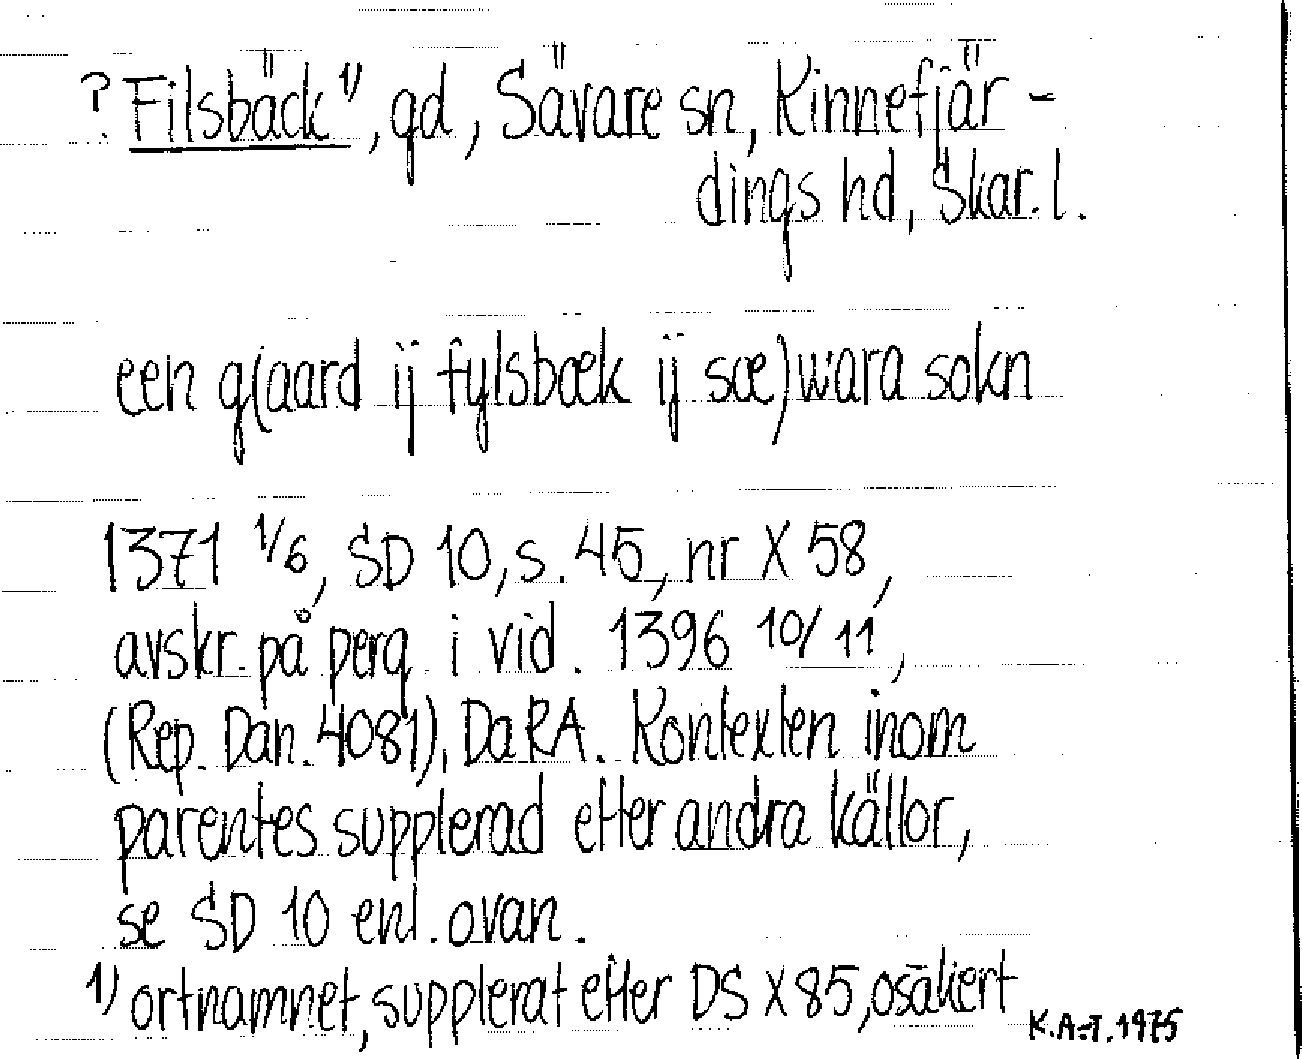 ? Filsbäck ¹⁾, gd, Sävare sn, Kinnefjär-
dings hd, Skar. l.
een g(aard ij fylsbæk ij sæ)wara sokn
1371 1/6, SD 10, s. 45, nr X 58,
avskr. på perg. i vid. 1396 10/11,
(Rep. Dan. 4081), DaRA. Kontexten inom
parentes supplerad efter andra källor,
se SD 10 enl. ovan.
1) ortnamnet, supplerat efter DS X 85, osäkert
K.A-T. 1975